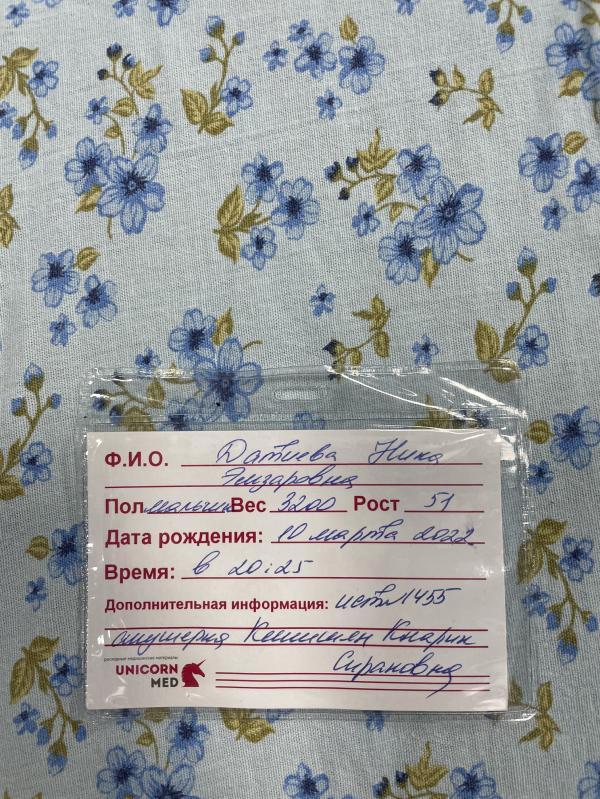 Ф.И.О. Датиева Ника
Элизаровна
Пол мальчик Вес 3200 Рост 51
Дата рождения: 10 марта 2022
Время: в 20:25
Дополнительная информация: ист№1455
акушерка Кнарик
расходные медицинские материалы
Сирановна
UNICORN
MED